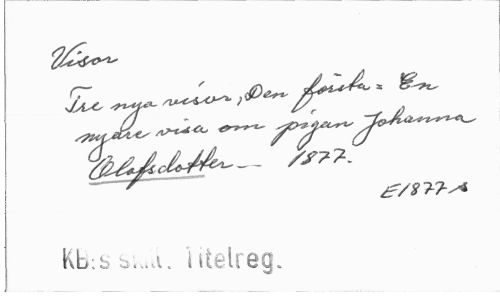 Visor
Tre nya visor, Den första = En
nyare visa om pigan Johanna
Olofsdotter — 1877.
E1877 s
KB:s skill. Titelreg.